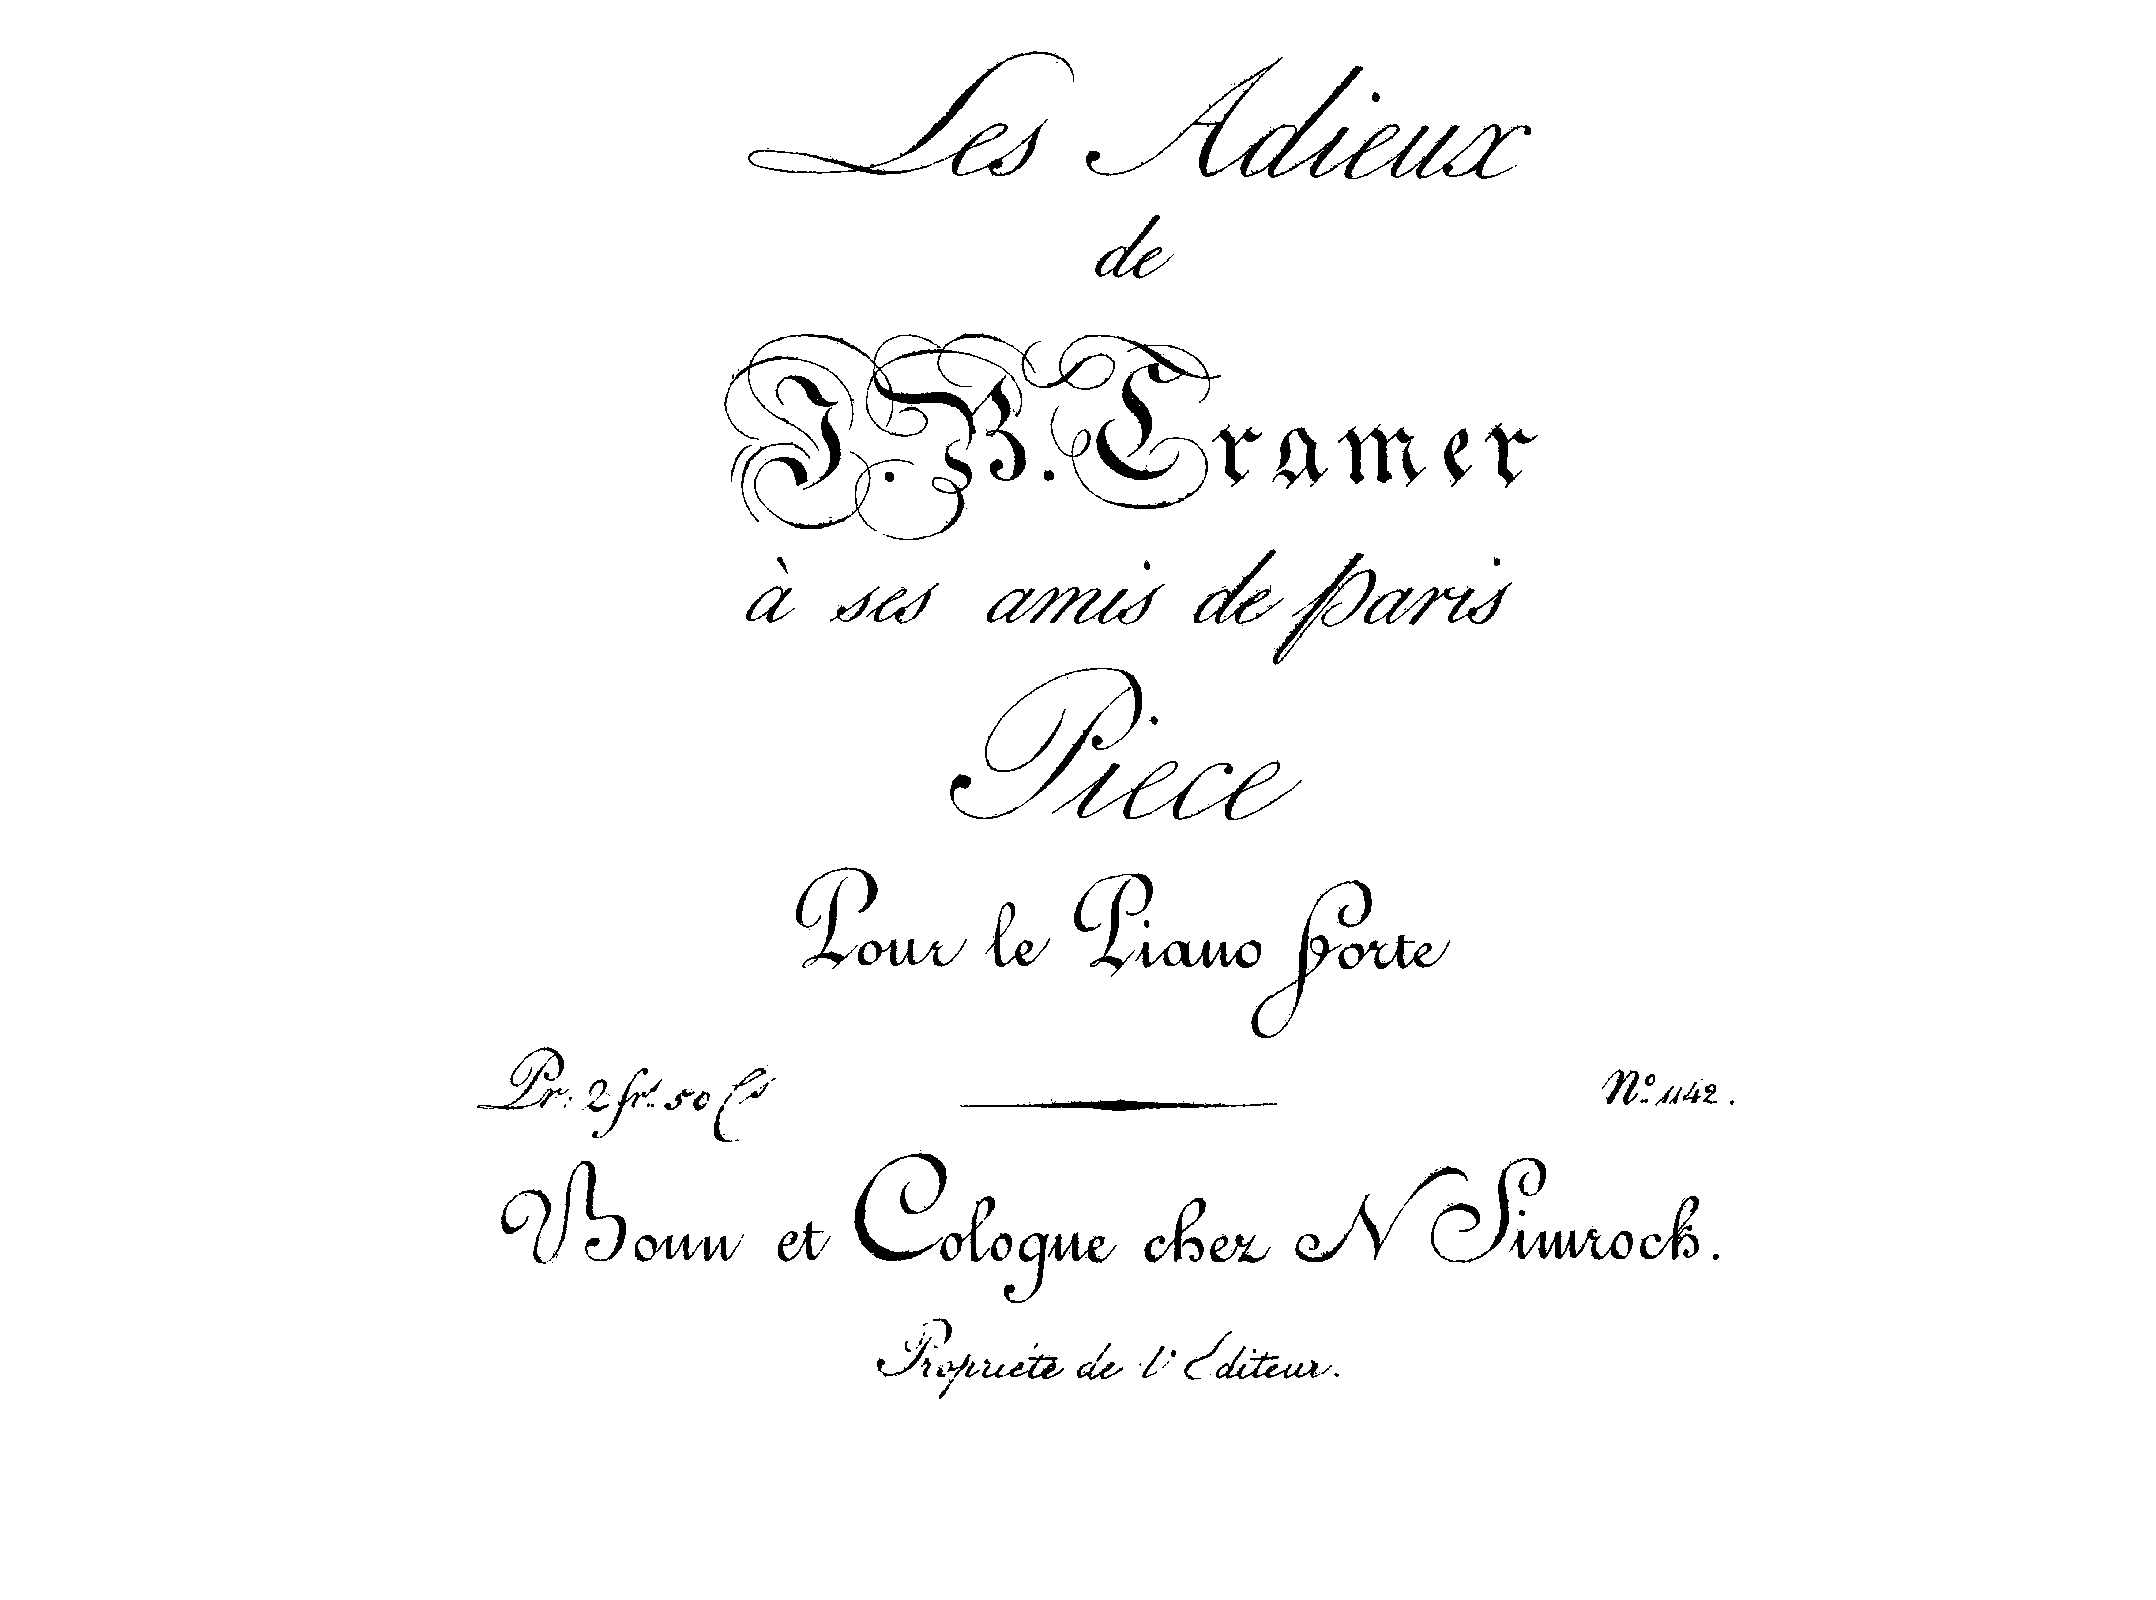 Les Adieux
de
J. B. Cramer
à ses amis de Paris
Piece
Pour le Piano Forte
Pr: 2 frs. 50 Cs
No. 1142.
Bonn et Cologne chez N Simrock.
Propriété de l'Editeur.